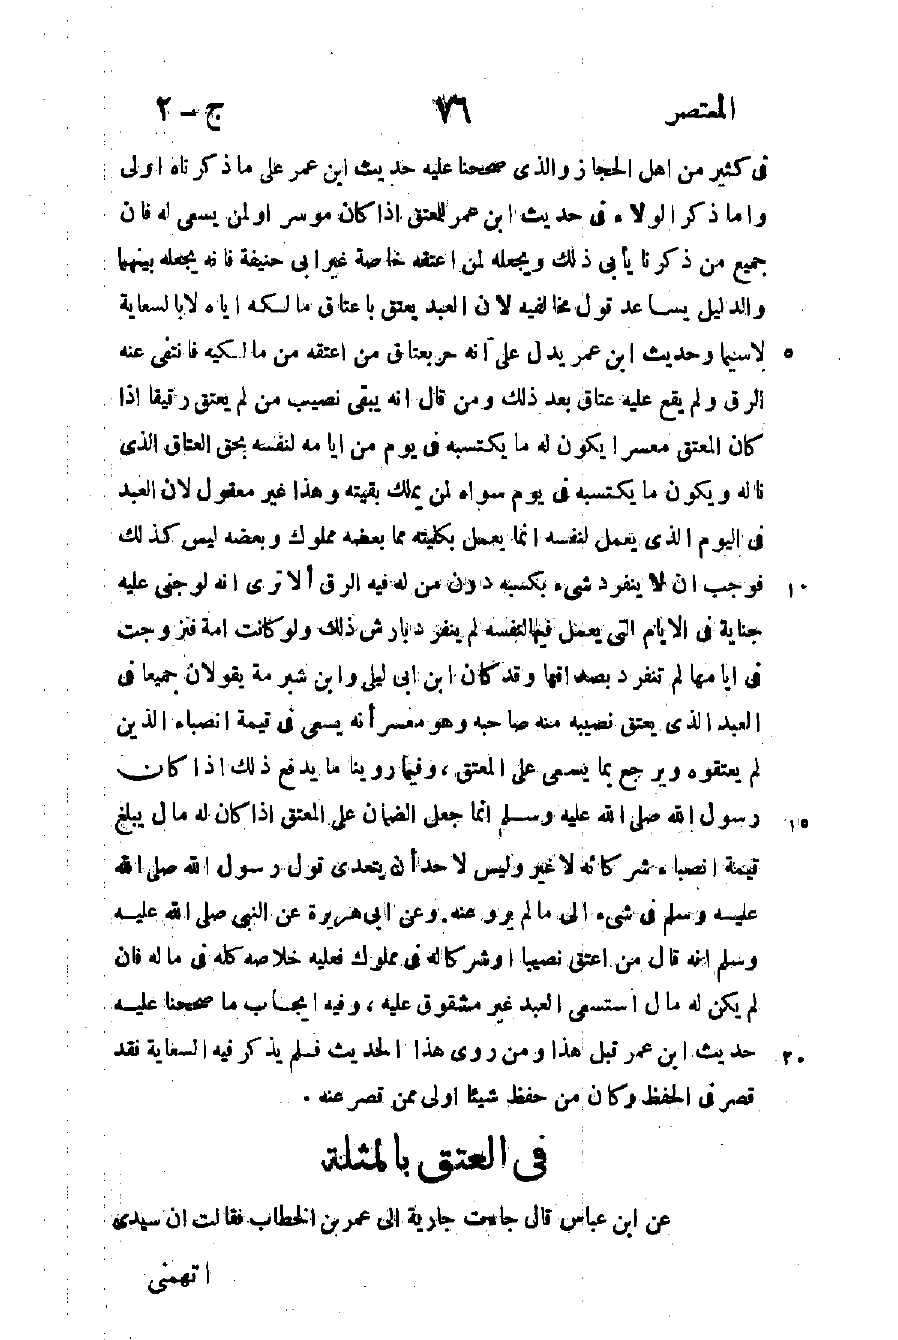 المعتصر ٧٦ ج - ٢
فى كثير من اهل الحجاز والذى صححنا عليه حديث ابن عمر على ما ذكرناه اولى
واما ذكر الولاء فى حديث ابن عمر للعتق اذا كان موسر اولمن يسعى له فان
جميع من ذكرنا يأبى ذلك ويجعله لمن اعتقه خاصة غير ابى حنيفة فانه يجعله بينهما
والدليل يساعد قول مخالفيه لان العبد يعتق باعتاق مالكه اياه لابالسعاية
٥ لاسيما وحديث ابن عمر يدل على انه حر بعتاق من اعتقه من مالكيه فانتفى عنه
الرق ولم يقع عليه عتاق بعد ذلك ومن قال انه يبقى نصيب من لم يعتق رقيقا اذا
كان المعتق معسرا يكون له ما يكتسبه فى يوم من ايامه لنفسه بحق العتاق الذى
ناله ويكون ما يكتسبه فى يوم سواه لمن يملك بقيته وهذا غير معقول لان العبد
فى اليوم الذى يعمل لنفسه انما يعمل بكليته مما بعضه مملوك وبعضه ليس كذلك
١٠ فوجب ان لا ينفرد شىء بكسبه دون من له فيه الرق ألا ترى انه لو جنى عليه
جناية فى الايام التى يعمل فيها لنفسه لم ينفرد بارش ذلك ولو كانت امة فتزوجت
فى ايامها لم تنفرد بصداقها وقد كان ابن ابى ليلى وابن شبرمة يقولان جميعا فى
العبد الذى يعتق نصيبه منه صاحبه وهو معسر أنه يسعى فى قيمة انصباء الذين
لم يعتقوه ويرجع بما يسعى على المعتق ، وفيما روينا ما يدفع ذلك اذا كان
١٥ رسول الله صلى الله عليه وسلم انما جعل الضمان على المعتق اذا كان له مال يبلغ
قيمة انصباء شركائه لا غير وليس لاحد أن يتعدى قول رسول الله صلى الله
عليه وسلم فى شىء الى ما لم يرو عنه . وعن ابى هريرة عن النبى صلى الله عليه
وسلم انه قال من اعتق نصيبا او شركا له فى مملوك فعليه خلاصه كله فى ماله فان
لم يكن له مال استسعى العبد غير مشقوق عليه ، وفيه ايجاب ما صححنا عليه
٢٠ حديث ابن عمر قبل هذا ومن روى هذا الحديث فلم يذكر فيه السعاية فقد
قصر فى الحفظ وكان من حفظ شيئا اولى ممن قصر عنه .
فى العتق بالمثلة
عن ابن عباس قال جاءت جارية الى عمر بن الخطاب فقالت ان سيدى
اتهمنى